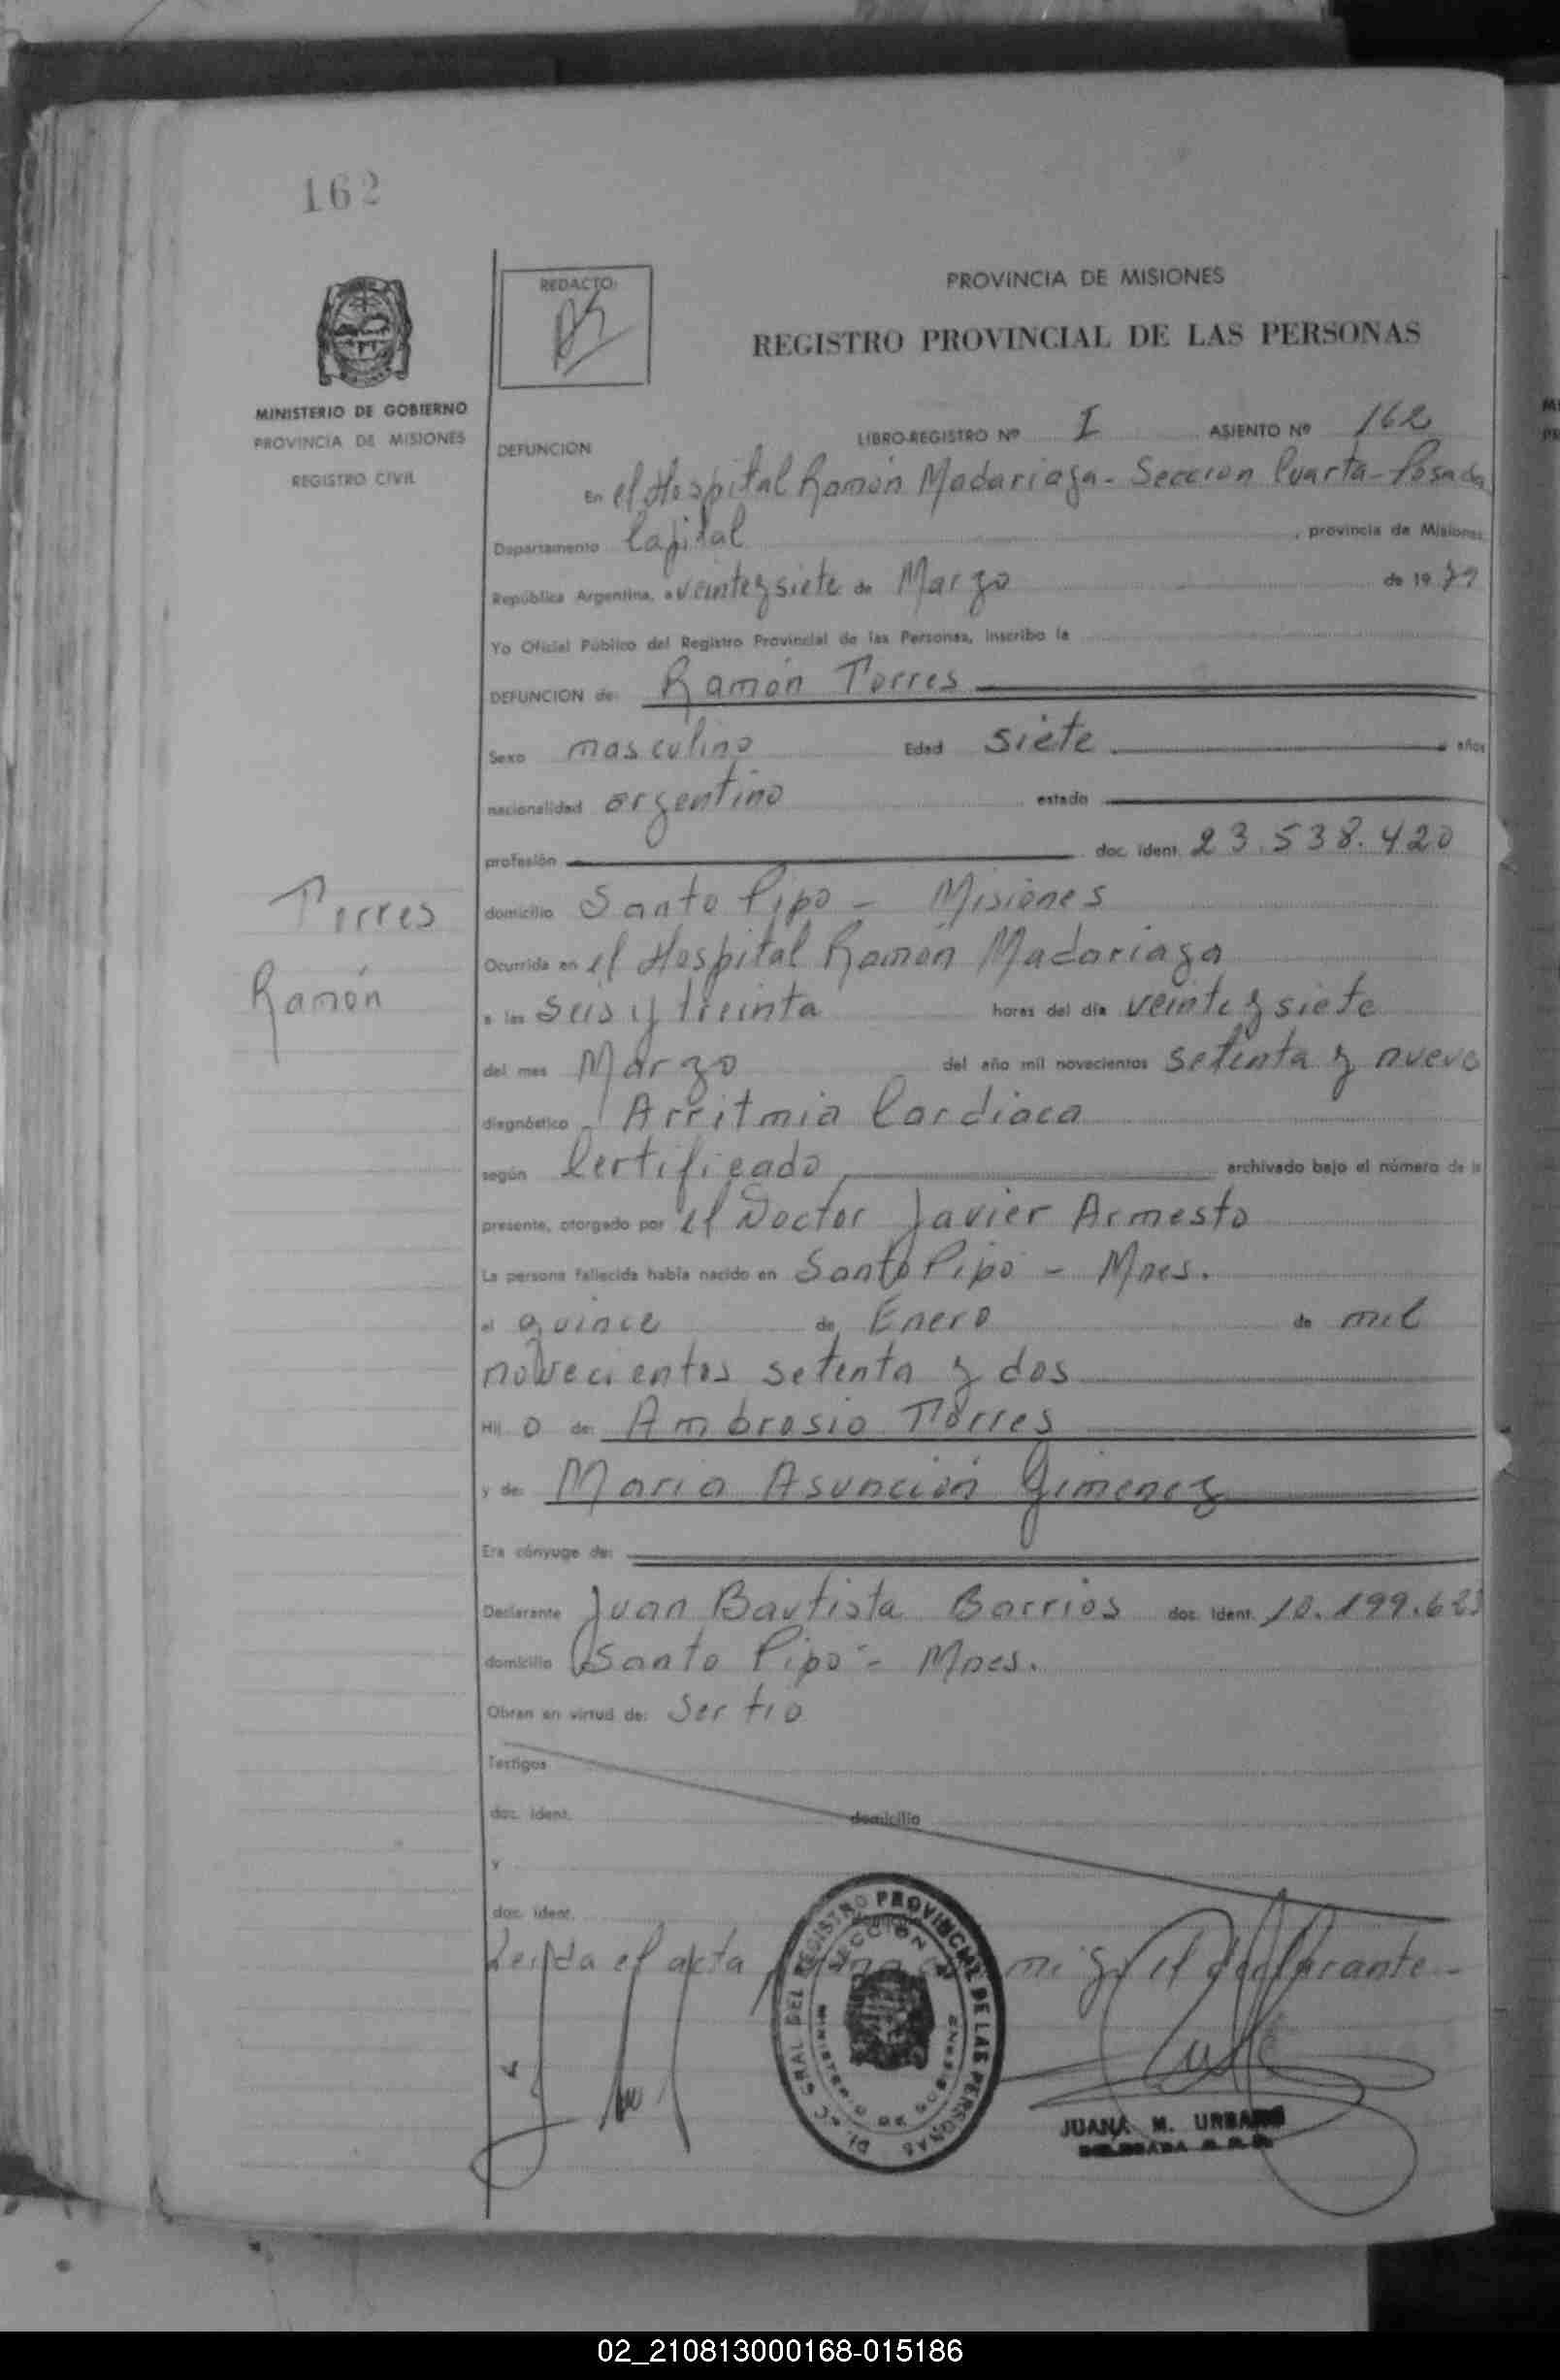 162
MINISTERIO DE GOBIERNO
PROVINCIA DE MISIONES
REGISTRO CIVIL
REDACTO:
PROVINCIA DE MISIONES
REGISTRO PROVINCIAL DE LAS PERSONAS
DEFUNCION LIBRO-REGISTRO Nº I ASIENTO Nº 162
En el Hospital Ramón Madariaga - Sección Cuarta - Posadas
Departamento Capital, provincia de Misiones
República Argentina, a veinte y siete de Marzo de 1979
Yo Oficial Público del Registro Provincial de las Personas, inscribo la
DEFUNCION de: Ramón Torres
Sexo masculino Edad siete años
nacionalidad argentino estado
profesión doc. ident. 23.538.420
Torres
Ramón
domicilio Santo Pipo - Misiones
Ocurrida en el Hospital Ramón Madariaga
a las seis y treinta horas del día veinte y siete
del mes Marzo del año mil novecientos setenta y nueve
diagnóstico Arritmia Cardiaca
según Certificado archivado bajo el número de la
presente, otorgado por el Doctor Javier Armesto
La persona fallecida había nacido en Santo Pipo - Mnes.
el quince de Enero de mil
novecientos setenta y dos
Hij o de: Ambrosio Torres
y de: Maria Asunción Gimenez
Era cónyuge de:
Declarante Juan Bautista Barrios doc. ident. 10.199.623
domicilio Santo Pipo - Mnes.
Obran en virtud de: Ser tio
Testigos
doc. ident. domicilio
y
doc. ident.
Leida el acta mi y el declarante -
DI C GRAL DEL REGISTRO PROVINCIAL DE LAS PERSONAS
SECCION
MINISTERIO DE GOBIERNO
JUANA M. URBANO
02_210813000168-015186